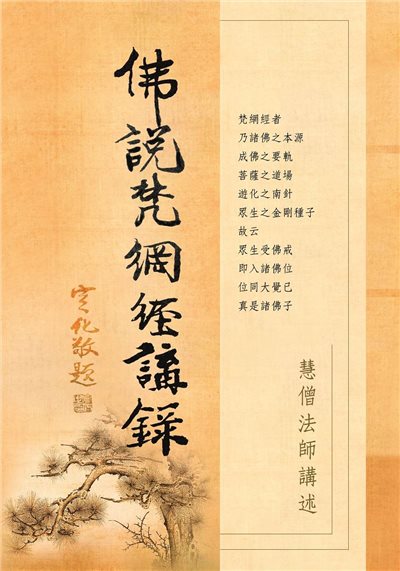 梵網經者
乃諸佛之本源
成佛之要軌
菩薩之道場
遊化之南針
眾生之金剛種子
故云
眾生受佛戒
即入諸佛位
位同大覺已
真是諸佛子
慧僧法師講述
佛說梵網經講錄
宣化敬題